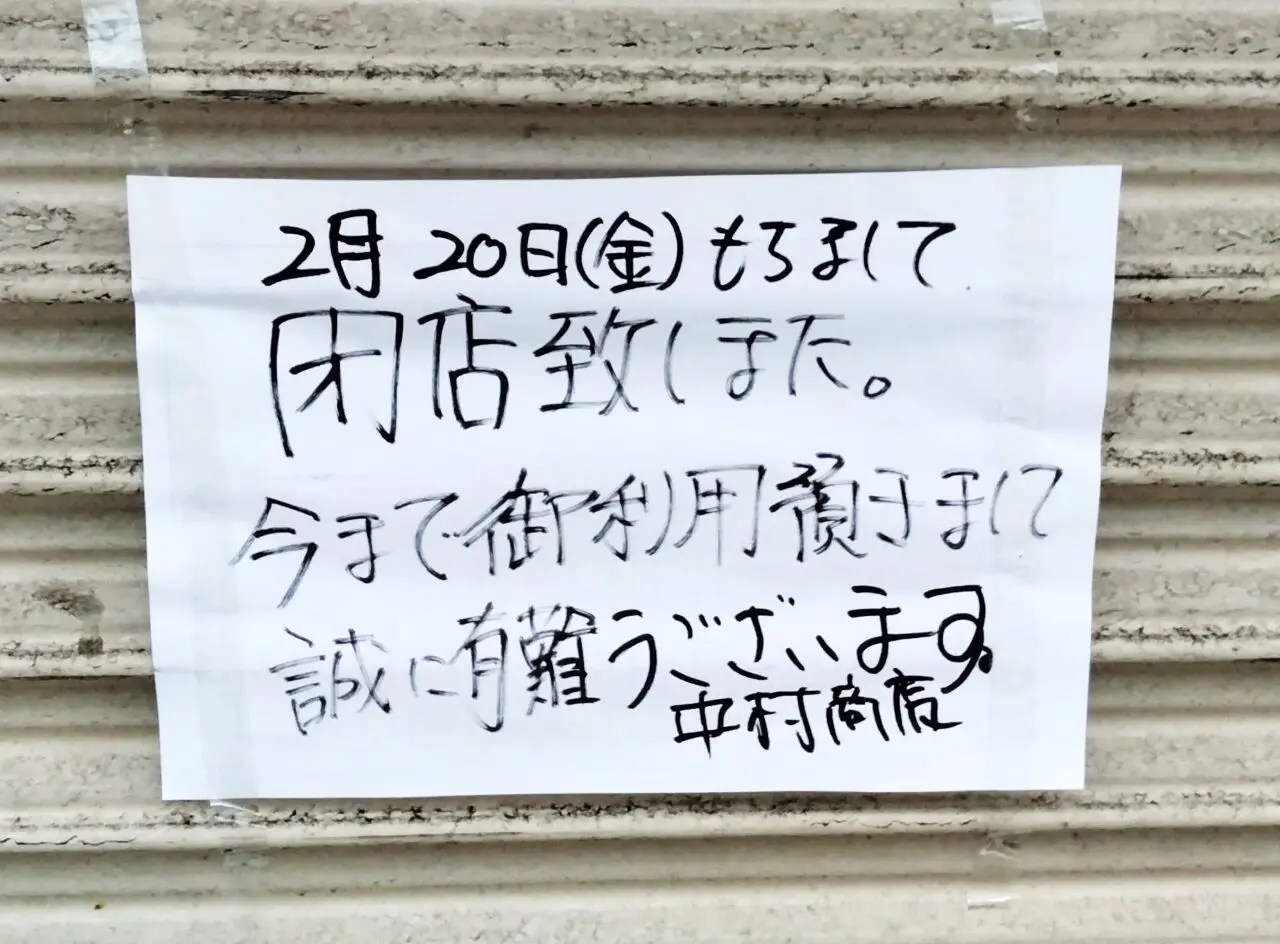 2月20日(金)もちまして
閉店致しました。
今まで御利用頂きまして
誠に有難うございます。
中村商店